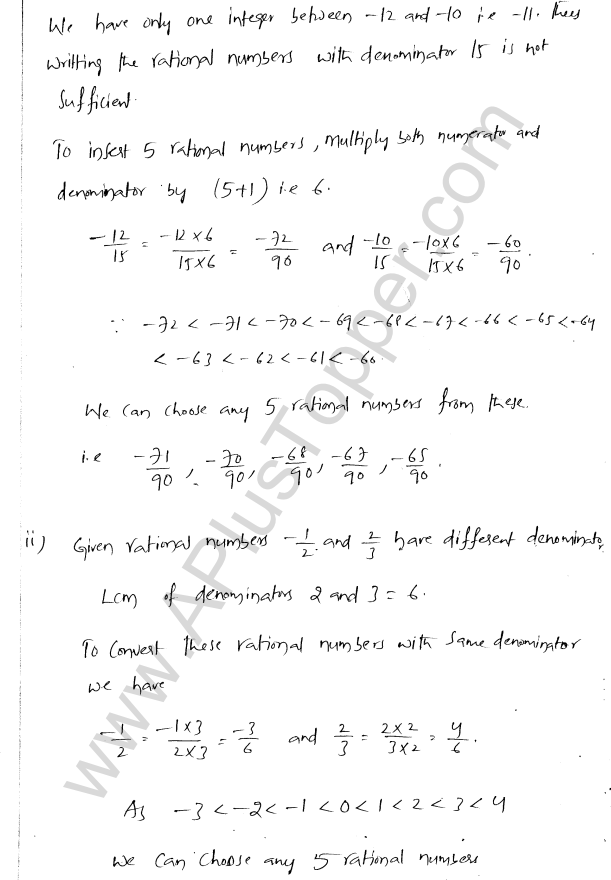 We have only one integer between -12 and -10 i.e -11. Thus
writting the rational numbers with denominator 15 is not
sufficient.
To insert 5 rational numbers, multiply both numerator and
denominator by (5+1) i.e 6.
-12/15 = -12×6/15×6 = -72/90 and -10/15 = -10×6/15×6 = -60/90.
∵ -72 < -71 < -70 < -69 < -68 < -67 < -66 < -65 < -64
< -63 < -62 < -61 < -60.
We can choose any 5 rational numbers from these.
i.e -71/90, -70/90, -68/90, -67/90, -65/90.
ii) Given rational numbers -1/2 and 2/3 have different denominator,
Lcm of denominators 2 and 3 = 6.
To convert these rational numbers with same denominator
we have
-1/2 = -1×3/2×3 = -3/6 and 2/3 = 2×2/3×2 = 4/6.
As -3 < -2 < -1 < 0 < 1 < 2 < 3 < 4
We can choose any 5 rational numbers
www.APlusTopper.com